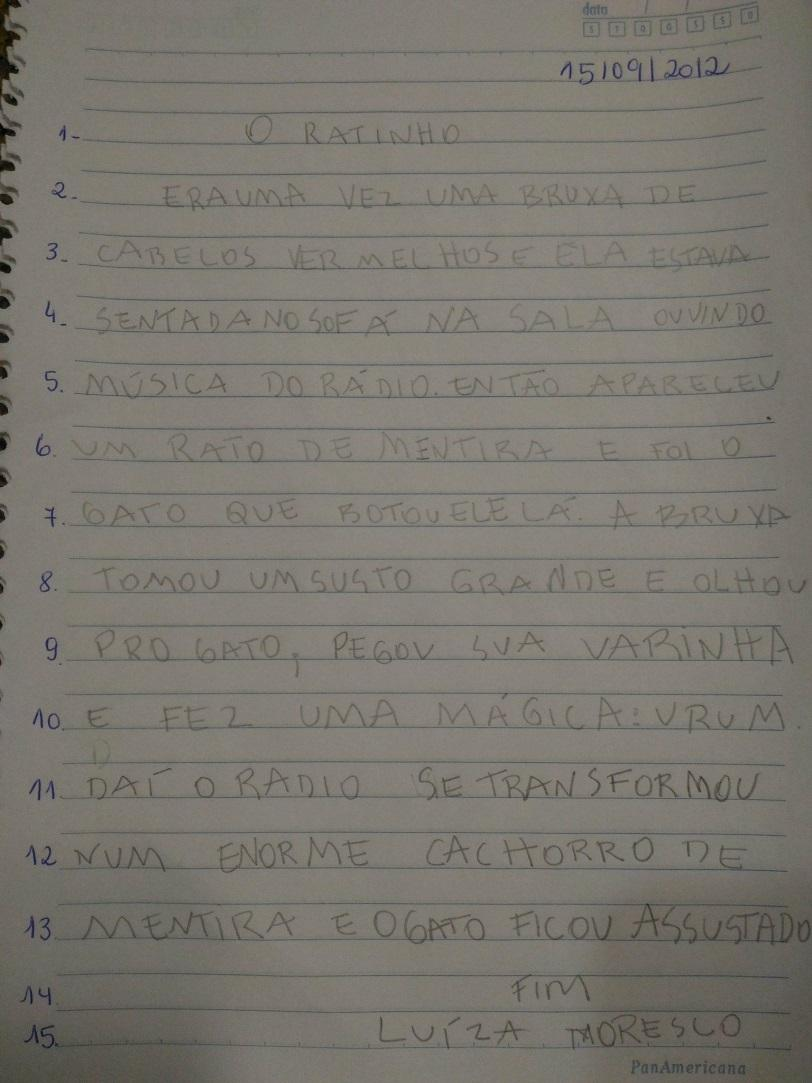 data / /
S T Q Q S S D
15/09/2012
1- O RATINHO
2. ERAUMA VEZ UMA BRUXA DE
3. CABELOS VERMELHOS E ELA ESTAVA
4. SENTADANOSOFÁ NA SALA OUVINDO
5. MÚSICA DO RÁDIO. ENTÃO APARECEU
6. UM RATO DE MENTIRA E FOI O
7. GATO QUE BOTOU ELE LÁ. A BRUXA
8. TOMOU UM SUSTO GRANDE E OLHOU
9. PRO GATO, PEGOU SUA VARINHA
10. E FEZ UMA MÁGICA: VRUM.
11. DAÍ O RADIO SE TRANSFORMOU
12 NUM ENORME CACHORRO DE
13. MENTIRA E O GATO FICOU ASSUSTADO
14. FIM
15. LUÍZA MORESCO
PanAmericana